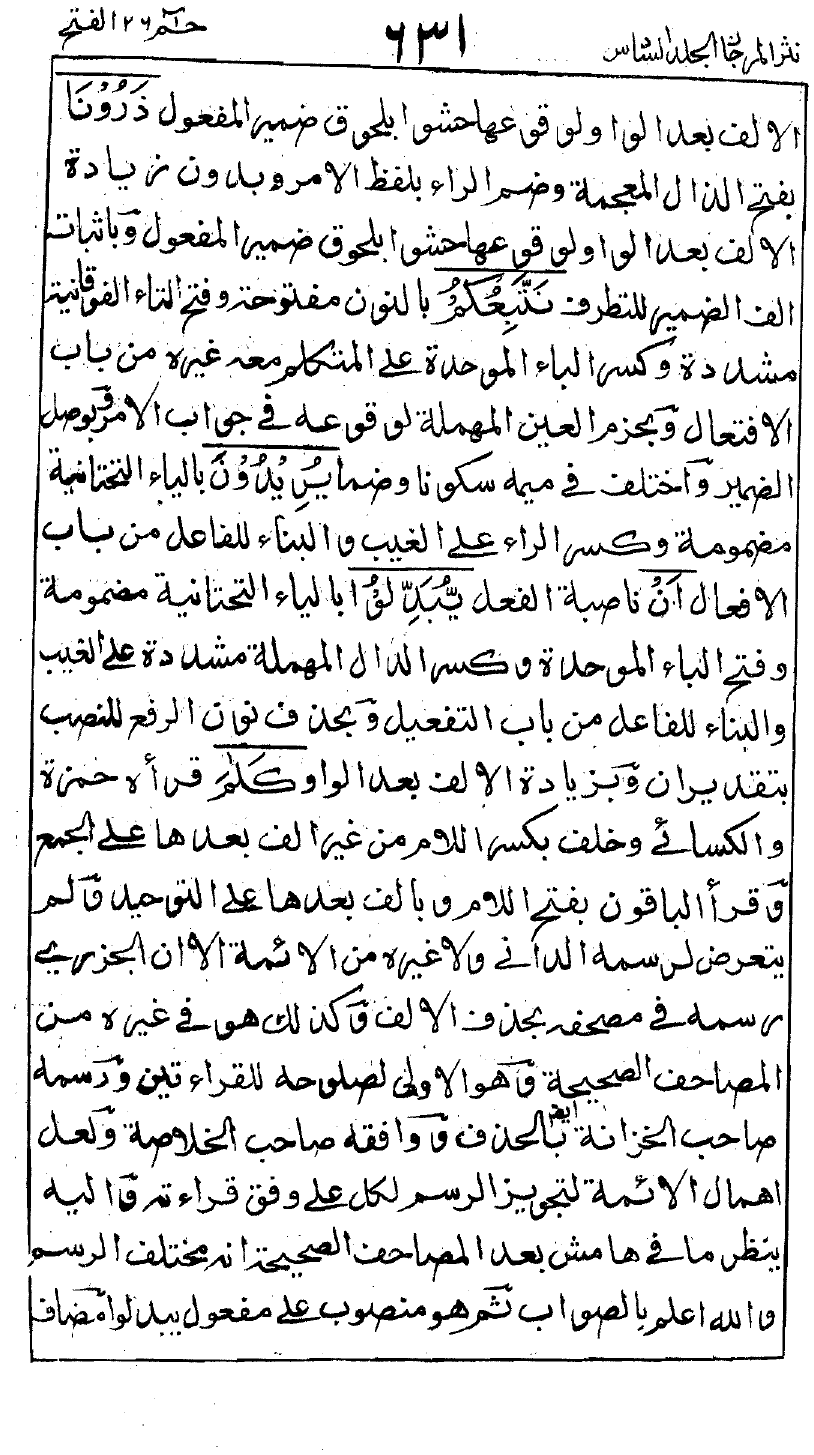 نثر المرجان الجلد السادس ٦٣١ حٰم ٢٦ الفتح
الالف بعد الواو لوقوعها حشوا بلحوق ضمير المفعول ذَرُوْنَا
بفتح الذال المعجمة وضم الراء بلفظ الامر وبدون زيادة
الالف بعد الواو لوقوعها حشوا بلحوق ضمير المفعول وباثبات
الف الضمير للتطرف نَتَّبِعْكُمْ بالنون مفتوحة وفتح التاء الفوقانية
مشددة وكسر الباء الموحدة على المتكلم معه غيره من باب
الافتعال وبجزم العين المهملة لوقوعه في جواب الامر وبوصل
الضمير واختلف في ميمه سكونا وضما يُرِيْدُوْنَ بالياء التحتانية
مضمومة وكسر الراء على الغيب والبناء للفاعل من باب
الافعال اَنْ ناصبة الفعل يُّبَدِّلُوْا بالياء التحتانية مضمومة
وفتح الباء الموحدة وكسر الدال المهملة مشددة على الغيب
والبناء للفاعل من باب التفعيل وبحذف نون الرفع للنصب
بتقدير ان وبزيادة الالف بعد الواو كَلٰمَ قرأه حمزة
والكسائي وخلف بكسر اللام من غير الف بعدها على الجمع
وقرأ الباقون بفتح اللام وبالف بعدها على التوحيد ولم
يتعرض لرسمه الداني ولا غيره من الائمة الا ان الجزري
رسمه في مصحفه بحذف الالف وكذلك هو في غيره من
المصاحف الصحيحة وهو الاولى لصلوحه للقراءتين ورسمه
صاحب الخزانة ايضا بالحذف ووافقه صاحب الخلاصة ولعل
اهمال الائمة لتجويز الرسم لكل على وفق قراءته واليه
ينظر ما في هامش بعد المصاحف الصحيحة انه مختلف الرسم
والله اعلم بالصواب ثم هو منصوب على مفعول يبدلوا مضاف